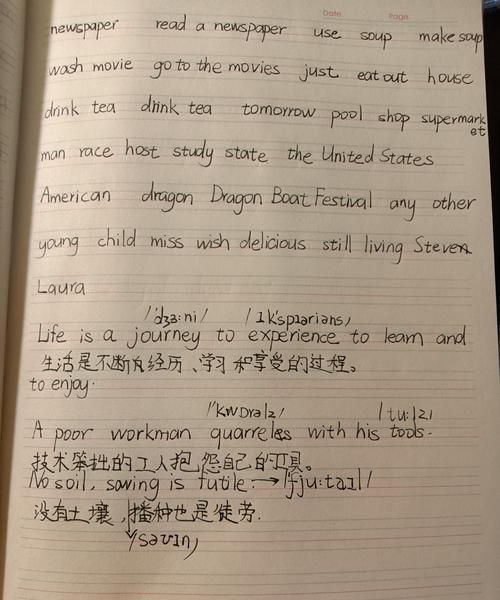 Date. Page.
newspaper read a newspaper use soup make soup
wash movie go to the movies just eat out house
drink tea drink tea tomorrow pool shop supermarket
man race host study state the United States
American dragon Dragon Boat Festival any other
young child miss wish delicious still living Steven
Laura
/'dʒɜ:ni/ /ɪk'spɪəriəns/
Life is a journey to experience to learn and
生活是不断的经历、学习和享受的过程。
to enjoy.
/'kwɒrəlz/ /tu:lz/
A poor workman quarreles with his tools.
技术笨拙的工人抱怨自己的工具。
No soil, sowing is futile. → /'fju:taɪl/
没有土壤,播种也是徒劳.
/səʊɪŋ/